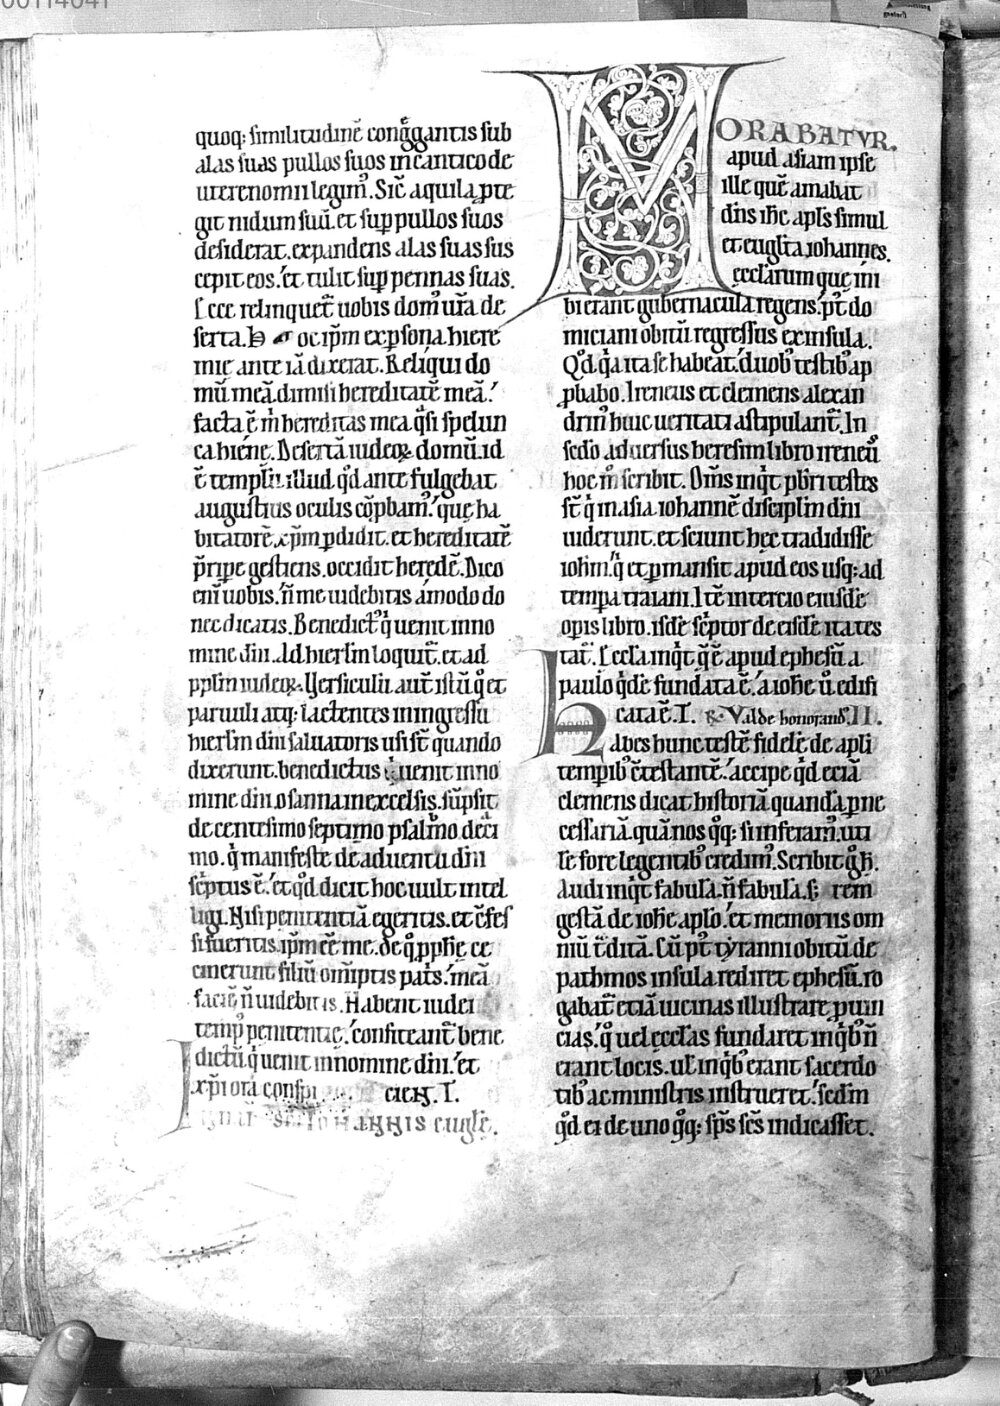 00114041
quoq: similitudinē congͣgantis sub
alas suas pullos suos in cantico de
uteronomii legimˀ. Sic̄ aquila p̱te
git nidum suū. et suꝑ pullos suos
desiderat. expandens alas suas sus
cepit eos. et tulit suꝑ pennas suas.
Ecce relinquet̄ uobis domˀ ur̄a de
serta. hoc ip̄m ex ꝑsona hiere
mię ante iā dixerat. Reliqui do
mū meā. dimisi hereditatē meā.
facta ē m̍ hereditas mea q̄si spelun
ca hiene. Desertā iudeoꝝ domū. id
ē templū illud. qd̄ ante fulgebat
augustius oculis cōpbamˀ. quę ha
bitatorē xp̄m ꝑdidit. et hereditatē
p̄ripe gestiens. occidit heredē. Dico
eni̅ uobis. n̄ me uidebitis ámodo do
nec dicatis. Benedictˀ q̍ uenit in no
mine dn̄i. Ad hierl̄m loquit̄. et ad
ppl̄m iudeoꝝ. Versiculū aut̄ istū q̍ et
paruuli atq: lactentes in ingressu
hierl̄m dn̄i saluatoris usi st̄ quando
dixerunt. benedictus q̍ uenit in no
mine dn̄i. osanna in excelsis. sūpsit
de centesimo septimo psalmo deci
mo. q̍ manifeste de aduentu dn̄i
sc̄ptus ē. et qd̄ dicit hoc uult intel
ligi. Nisi penitentiā egeritis. et c̄fes
si fueritis. ip̄m eē me. de q̊ pphē. ce
cinerunt filiū omīptis pat̄s. meā
faciē n̄ uidebitis. Habent iudei
tempˀ penitentię. confiteant̄ bene
dictū q̍ uenit in nomine dn̄i. et
xp̄i ora
cieꝝ. I.
IOHANNIS eugl̄e.
MORABATVR.
apud asiam ipse
ille quē amabat
dn̄s ih̄c. apl̄s simul
et eugl̄ta iohannes.
ecclārum quę ini
bi erant gubernacula regens. pˀt do
miciani obitū regressus ex insula.
Qd̄ q̄a ita se habeat. duobˀ testibˀ ap
ꝓbabo. Ireneus et clemens alexan
drinˀ huic ueritati astipulant̄. In
sc̄do aduersus heresim libro ireneˀ
hoc mˀ scribit. Om̄s inq̍t pbr̄i testes
st̄ q̍ in asia iohannē discipl̄m dn̄i
uiderunt. et sciunt hęc tradidisse
ioh̄m. q̍ et ꝑmansit apud eos usq: ad
tempa traiani. Itē in tercio eiusdē
opis libro. isdē sc̄ptor de eisdē ita tes
tat̄. Eccla inq̍t q̄ ē apud ephesū. a
paulo q̍dē fundata ē. a ioh̄e ū edifi
cata ē. I. R. Valde honorandˀ. II.
Habes hunc testē fidelē. de apl̄i
tempibˀ c̄testantē. accipe qd̄ eciā
clemens dicat. historiā quandā ꝑne
cessariā. quā nos q̊q: si inseramˀ. uti
le fore legentibˀ credimˀ. Scribit g̊ h̄.
Audi inq̍t fabulā. n̄ fabulā. s; rem
gestā de ioh̄e apl̄o. et memoriis om
niū c̄ditā. Cū pˀt tyranni obitū de
pathmos insula rediret ephesū. ro
gabat̄ etiā uicinas illustrare puin
cias. q̊ uel ecclas fundaret in q̍bˀ n̄
erant locis. ut̄ in q̍bˀ erant sacerdo
tibˀ ac ministris instrueret. sc̄dm
qd̄ ei de uno q̊q: sps̄ sc̄s indicasset.